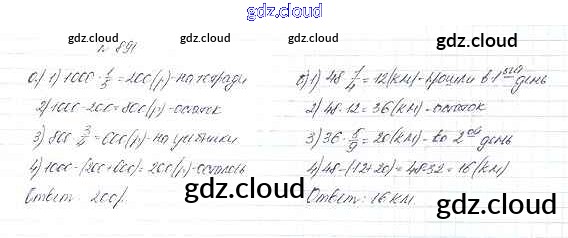 gdz.cloud
gdz.cloud
gdz.cloud
№ 891
а) 1) 1000 · 1/5 = 200 (р) - на тетради
2) 1000 - 200 = 800 (р) - остаток
3) 800 · 3/4 = 600 (р) - на учебники
4) 1000 - (200 + 600) = 200 (р) - осталось
Ответ: 200 р.
gdz.cloud
б) 1) 48 · 1/4 = 12 (км) - прошли в 1 ый день
2) 48 - 12 = 36 (км) - остаток
3) 36 · 5/9 = 20 (км) - во 2 ой день
4) 48 - (12 + 20) = 48 - 32 = 16 (км)
Ответ: 16 км.
gdz.cloud
gdz.cloud
gdz.cloud
gdz.cloud